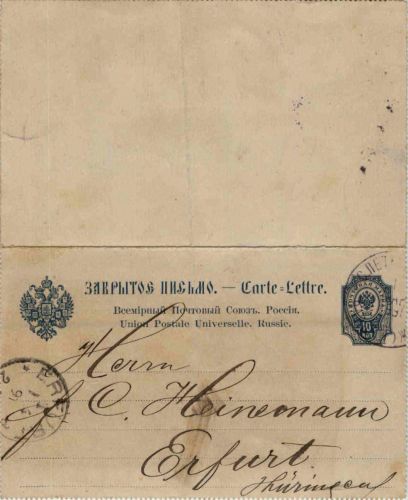 ЗАКРЫТОЕ ПИСЬМО. — Carte-Lettre.
Всемірный Почтовый Союзъ. Россія.
Union Postale Universelle. Russie.
10
Herrn
J. C. Heinemann
Erfurt
Thüringen
ERFURT